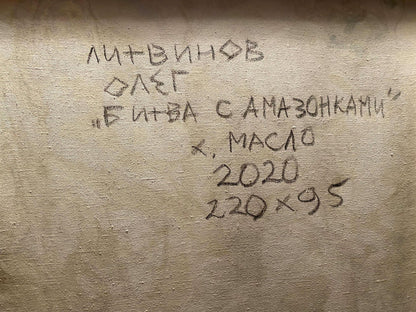 ЛИТВИНОВ
ОЛЕГ
„БИТВА С АМАЗОНКАМИ"
х, МАСЛО
2020
220×95